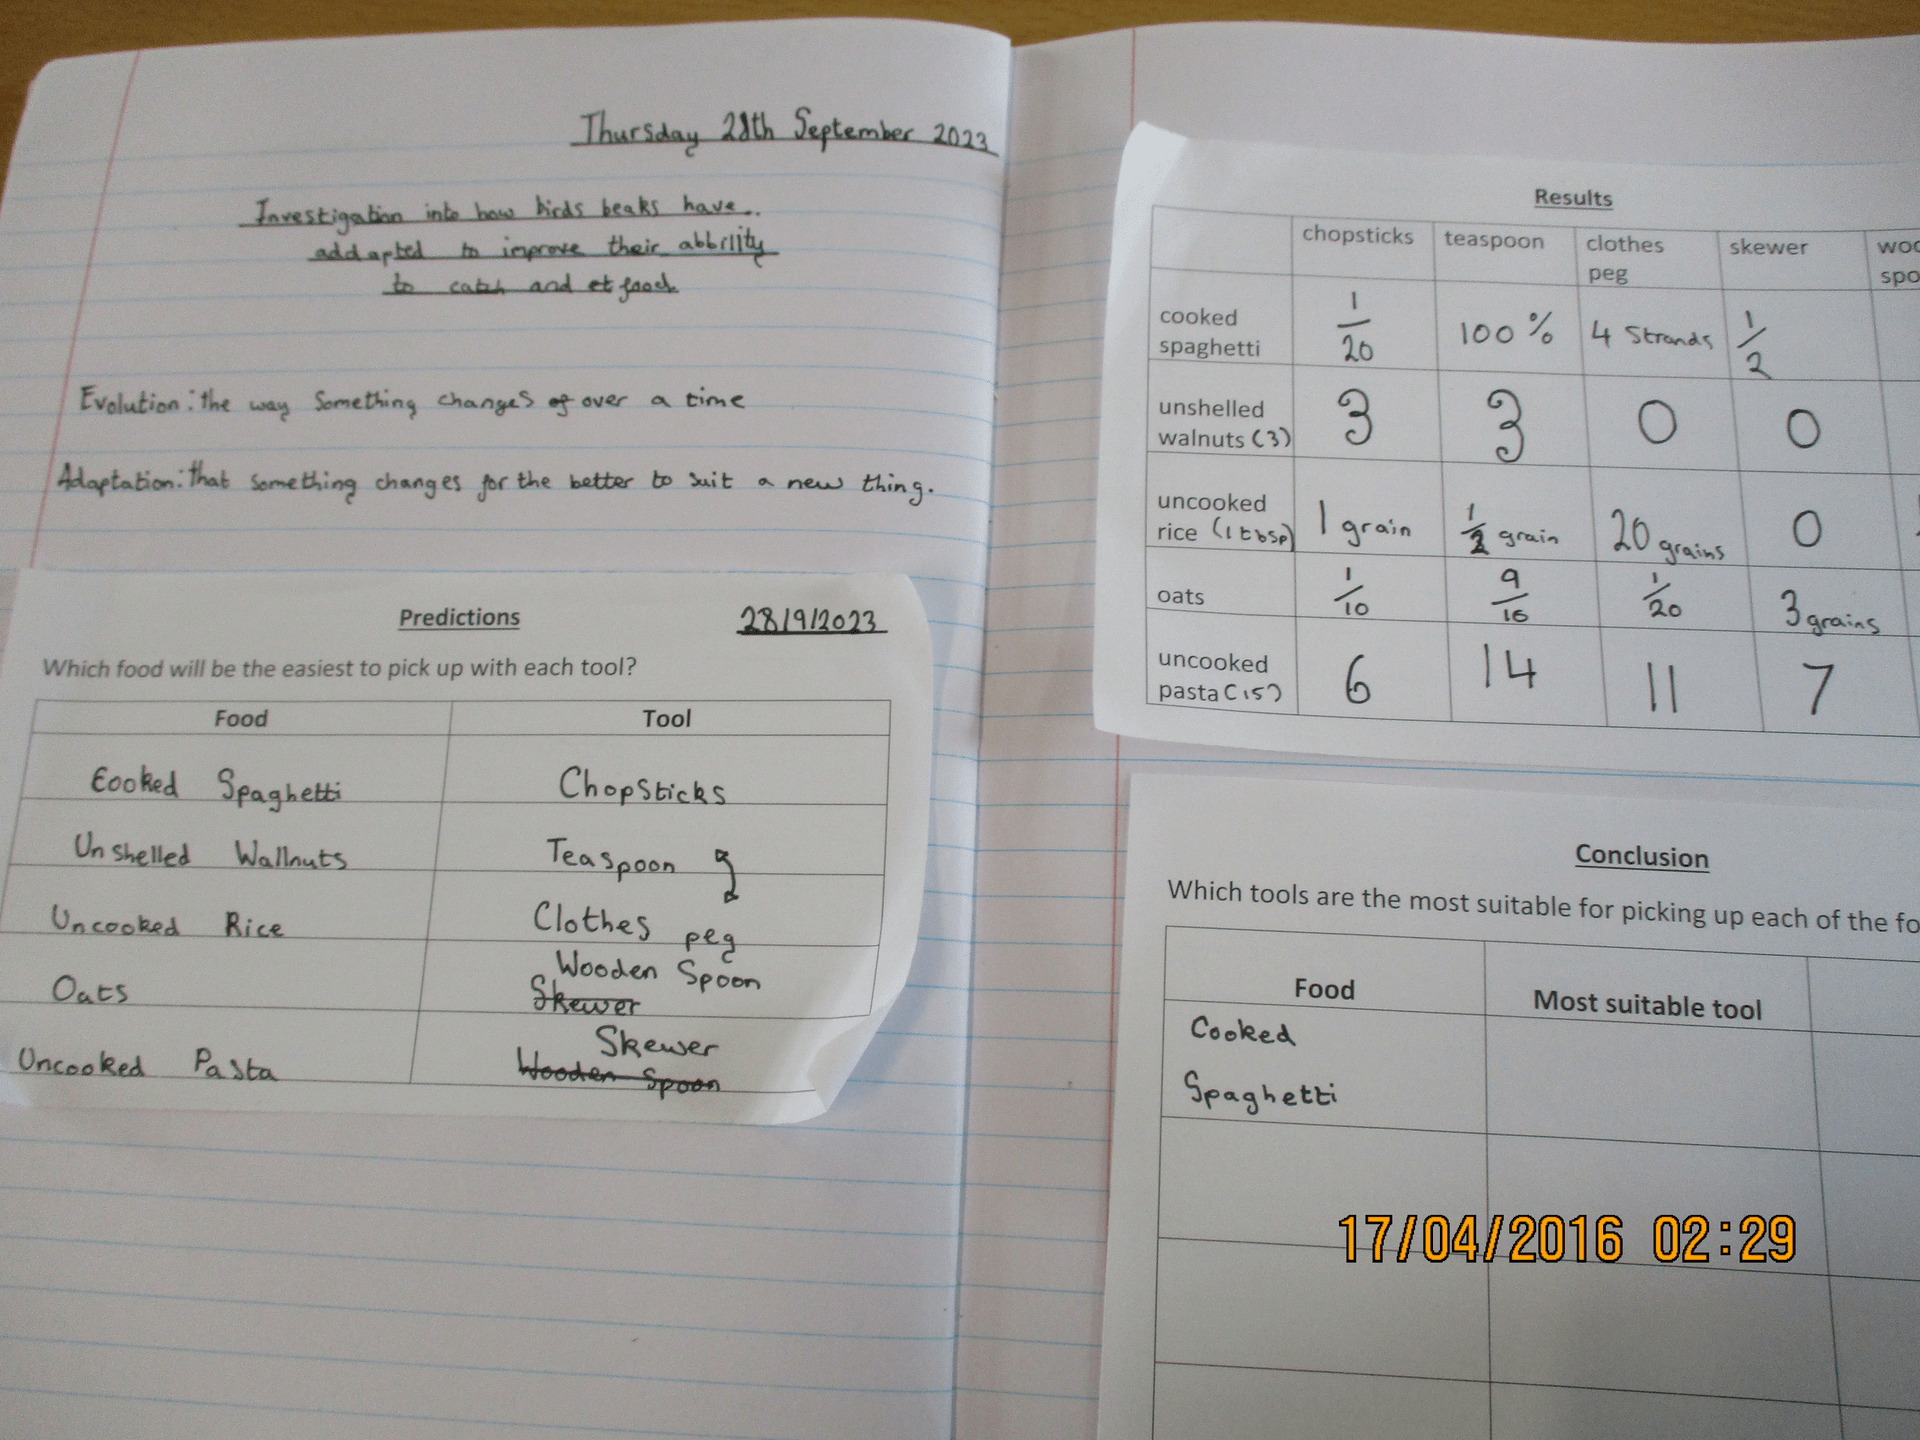 Thursday 28th September 2023
Investigation into how birds beaks have..
addapted to improve their abbility
to catch and et food
Evolution: the way Something changes of over a time
Adaptation: that something changes for the better to suit a new thing.
Predictions 28/9/2023
Which food will be the easiest to pick up with each tool?
Food Tool
Cooked Spaghetti Chopsticks
Unshelled Wallnuts Teaspoon
Uncooked Rice Clothes peg
Wooden Spoon
Oats Skewer
Skewer
Uncooked Pasta Wooden Spoon
Results
chopsticks teaspoon clothes peg skewer woo
spo
cooked spaghetti 1/20 100% 4 Strands 1/2
unshelled walnuts (3) 3 3 0 0
uncooked rice (1 tbsp) 1 grain 1/2 grain 20 grains 0
oats 1/10 9/10 1/20 3 grains
uncooked pasta (15) 6 14 11 7
Conclusion
Which tools are the most suitable for picking up each of the fo
Food Most suitable tool
Cooked
Spaghetti
17/04/2016 02:29